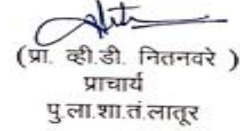 (प्रा. व्ही.डी. नितनवरे )
प्राचार्य
पु.ला.शा.तं.लातूर